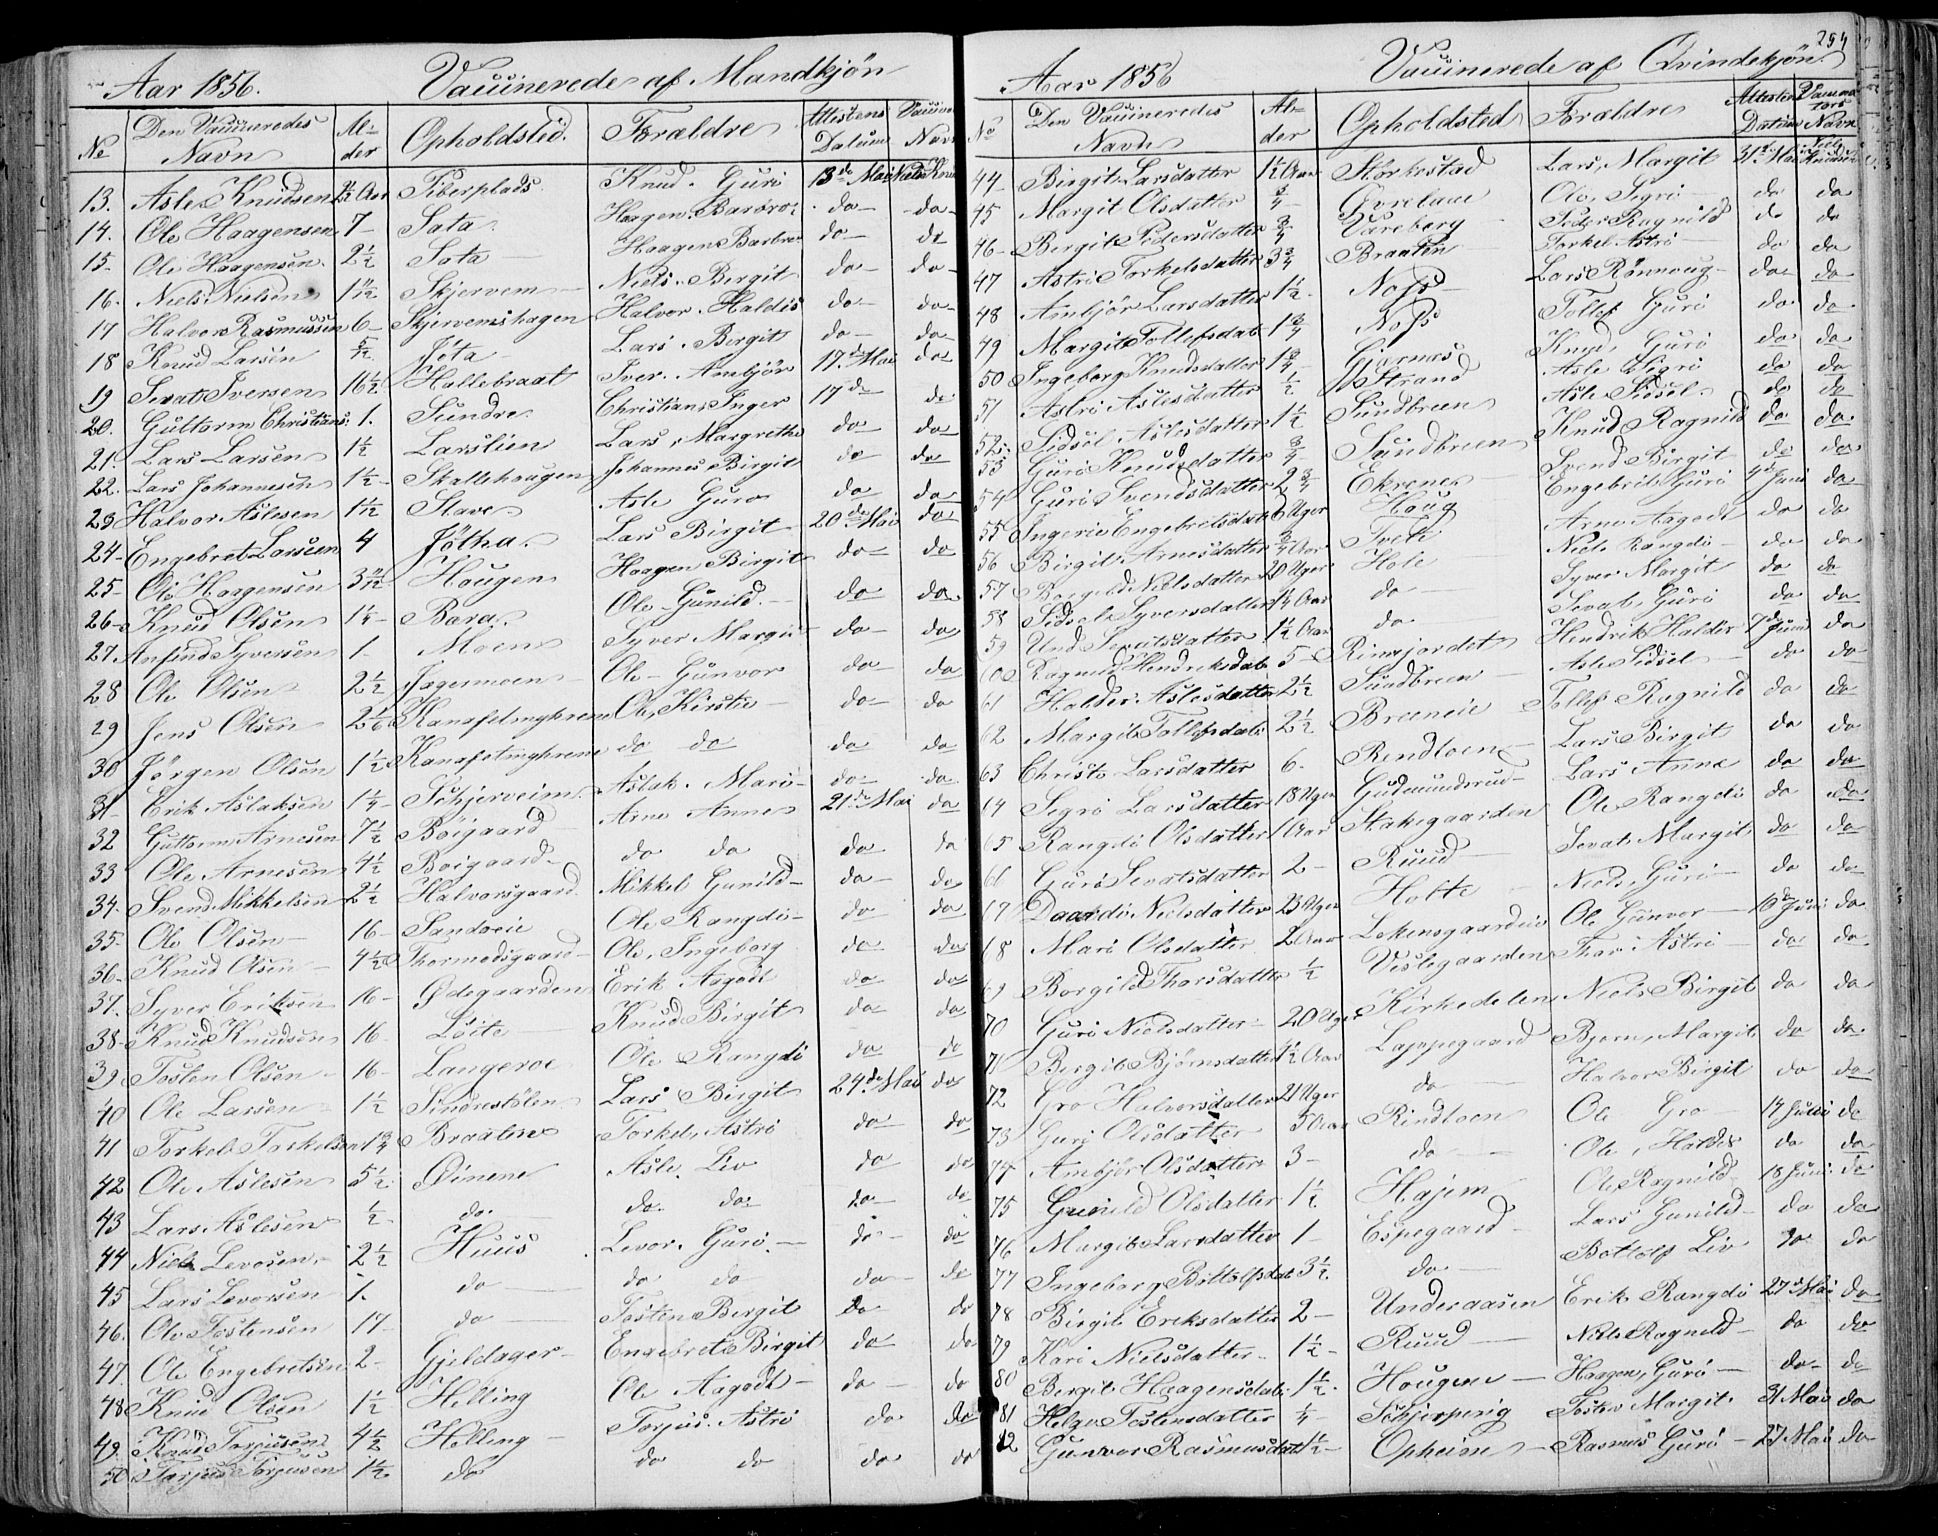 Aar 1856. Vaccinerede af Mandkjøn
No Den Vaccineredes Navn Alder Opholdsted. Forældre Attestens Datum Navn
13. Asle Knudsen Aar Knud. Guri 13de Mai
14. Ole Haagensen 7 - Sata Haagen. Barbro do - do -
15. Ole Haagensen. 2½ Sata Haagen Barbro do - do
16. Niels Nielsen Skjervem Niels. Birgit do - do -
17 Halvor Rasmussen 6 - Skjervemshagen Halvor. Haldis do - do -
18 Knud Larsen Jøta Lars. Birgit do - do -
19 Sevat Iversen 16½ Hallebraat Iver. Ambjør 17de Mai do
20. Guttorm Christians: 1. Sundre Christian Inger 17de do
21. Lars Larsen 1½ Larslien Lars, Margrethe do do
22. Lars Johannesen 1½ - Skallehougen Johannes Birgit do do
23 Halvor Aslesen Stave Asle Guro do do
24 - Engebret Larsen 4 Jøtha. Lars Birgit 20de Mai do
25 - Ole Haagensen Hougen Haagen Birgit do - do
26 - Knud Olsen Bara Ole Gunild. - do do
27. Anfind Syversen 1 - Moen Syver Margit do - do
28 Ole Olsen 2½ Jægermoen Ole - Gunvor do do
29 Jens Olsen Ole, Kirstie do - do
30 Jørgen Olsen 1½ do do do do
31 - Erik Aslaksen Schjerveim Aslak. Mari - do do
32 Guttorm Arnesen 7½ Boigaard Arne Anne 21de Mai do
33 Ole Arnesen 4½ Boigaard - do do do do
34. Svend Mikkelsen 2½ Halvorsgaard Mikkel Gunild - do - do
35. Ole Olsen 16 - Sandoeie Ole Rangdi - do do
36. Knud Olsen - 4½ Thormodsgaard Ole, Ingeborg do do
37. Syver Eriksen 16 - Ødegaarden Erik Aagodt do do
38 - Knud Knudsen 16 - Løite Knud Birgit do do
39. Tosten Olsen - 16 - Langeroe Ole Rangdi do do
40 Ole Larsen 1½ Sindrestølen Lars Birgit 24de Mai do
41 Torkel Torkelsen 1¾ Braaten Torkel, Astri do do
42 Ole Aslesen 5½ Dinene Asle, Liv do do
43 Lars Aslesen ½ do. do. do do do
44 Niels Levorsen. 2½ Huus Levor. Guri. - do - do
45 Lars Levorsen 1. do do do do do
46. Ole Tostensen 17 - do Tosten Birgit do do
47. Ole Engebretsen 2 - Gjeldager - Engebret Birgit do do
48 Knud Olsen 1½ Helling Ole Aagodt - do - do
49. Knud Torjusen 4½ Helling - Torjus. Astri do do
50 Torjus Torjusen 1½ do do do do do
254
Aar 1856 Vaccinerede af Qvindekjøn
No Den Vaccineredes Navn Alder Opholdsted Forældre Attestens Datum Navn
44 - Birgit Larsdatter 1½ Aar Storkestad Lars, Margit 31te Mai
45 Margit Olsdatter ¾ Ole, Sigri do do
46 - Birgit Pedersdatter ¾ Vareberg Peder Ragnild do do
47 Astri Torkelsdatter 3¾ Braaten Torkel Astri do do
48 Ambjør Larsdatter 1½ Lars Rønnoug do do
49 Margit Tollefsdat: 1¾ Tollef Guri do do
50 Ingeborg Knudsdatter Gjernæs Knud, Guri do do
51 Astri Aslesdatter ½ Strand Asle Sigri do do
52. Sidsel Aslesdatter 1½ Sundbreen Asle Sidsel. do do
53 Guri Knudsdatter ¾ Sundbreen Knud Ragnild do do
54 Guri Svendsdatter 2¾ Ekrene Svend Birgit do do
55 Ingerie Engebretsdat 6 Uger Houg Engebret Guri 4de Juni do
56 Birgit Arnesdatter ¾ Aar Tvete Arne Aagodt do do
57 Borgild Nielsdatter 20 Uger Hole Niels Rangdi do do
58 Sidsel Syversdatter Aar do Syver Margit do do
59 Und Sevatsdatter 1½ Aar do Sevat, Guri do do
60 Ragnild Hendriksdat 5 - Rimejordet Hendrik Haldis 7de Juni do
61 Haldis Aslesdatter 2½ Sundbreen Asle Sidsel do do
62 Margit Tollefsdat: 2½ Breeneie Tollef Ragnild do do
63 Christi Larsdatter 6. Rendtoen Lars Birgit do do
64 Sigri Larsdatter 18 Uger Gudmundsrud Lars Anne do do
65 Rangdi Olsdatter 1 Aar Stakegaarden Ole Rangdi do do
66 Guri Sevatsdatter 2 - Ruud Sevat Margit do do
67 Daardi Nielsdatter 23 Uger Hotte Niels, Guri do do
68 Mari Olsdatter 2 Aar Lokensgaardeie Ole Gunvor - 10de Juni do
69 Borgild Thorsdatter ½ Veslegaarden Thor Astri do do
70 Guri Nielsdatter 20 Uger Kirkedelen Niels Birgit do do
71 Birgit Bjørnsdatter 4½ Aar Lappegaard Bjørn, Margit do do
72 Gro Halvorsdatter 21 Uger do Halvor Birgit do do
73 Guri Olsdatter 5 Aar Rindtoen Ole Gro do
74 Ambjør Olsdatter 3 - do Ole, Haldis do do
75 Gunild Olsdatter 1½ Hajem Ole Ragnild 18 Juni do
76 Margit Larsdatter 1 - Espegaard Lars Gunild do do
77 Ingeborg Bottolfsdat 3½ do Bottolf Liv do do
78 Birgit Eriksdatter 2 - Underaasen Erik Rangdi 27de Mai do
79 Kari Nielsdatter - 1½ - Ruud Niels Ragnild do do
80 Birgit Haagensdat 1½ - Hougen - Haagen, Guri - do - do
81 Helge Tostensdatter ¼ Tosten Margit 31 Mai do
82 Gunvor Rasmusdat 1½ - Opheim - Rasmus Guri - 27 Mai do